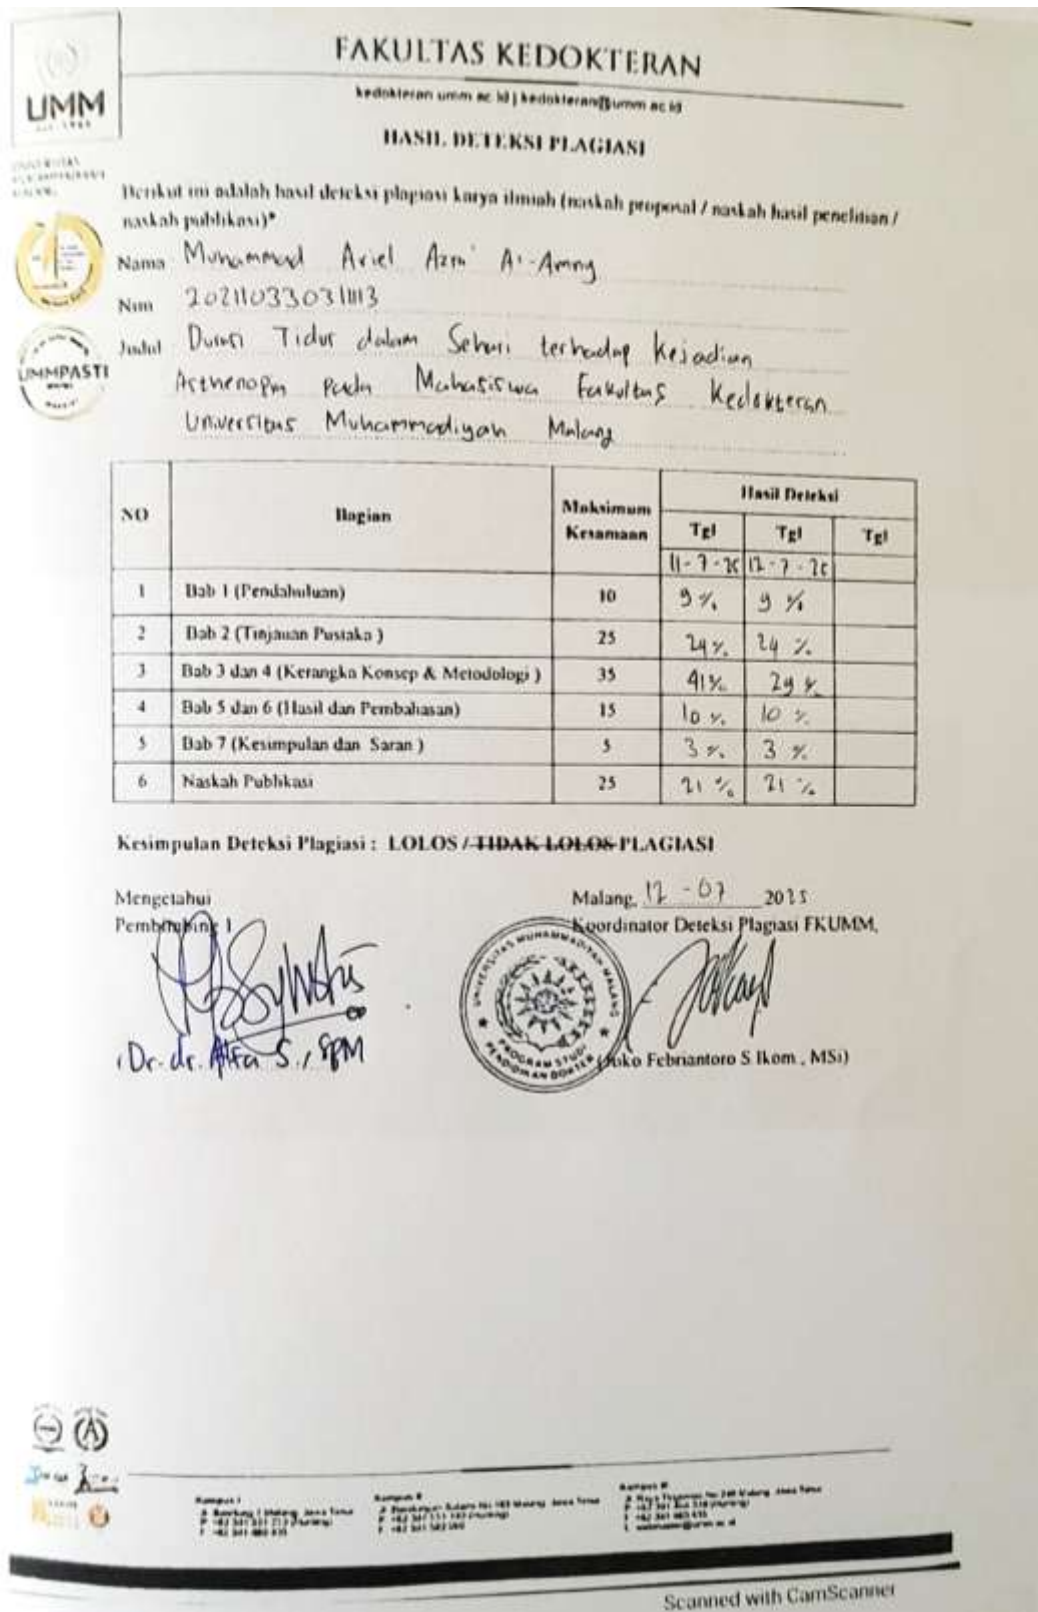 FAKULTAS KEDOKTERAN
kedokteran.umm.ac.id | kedokteran@umm.ac.id
UMM
HASIL DETEKSI PLAGIASI
Berikut ini adalah hasil deteksi plagiasi karya ilmiah (naskah proposal / naskah hasil penelitian /
naskah publikasi)*
Nama Muhammad Ariel Azmi
Nim
UMMPASTI
Judul Durasi Tidur dalam Sehari terhadap Kejadian
Asthenopia pada Mahasiswa Fakultas Kedokteran
Universitas Muhammadiyah Malang
NO Bagian Maksimum Kesamaan Hasil Deteksi
Tgl Tgl Tgl
11-7-25 12-7-25
1 Bab 1 (Pendahuluan) 10 9% 9%
2 Bab 2 (Tinjauan Pustaka ) 25 24% 24 %
3 Bab 3 dan 4 (Kerangka Konsep & Metodologi ) 35 41% 29 %
4 Bab 5 dan 6 (Hasil dan Pembahasan) 15 10 % 10 %
5 Bab 7 (Kesimpulan dan Saran ) 5 3 % 3 %
6 Naskah Publikasi 25 21 % 21 %
Kesimpulan Deteksi Plagiasi : LOLOS / TIDAK LOLOS PLAGIASI
Mengetahui
Malang, 12 - 07 2025
Pembimbing I
Koordinator Deteksi Plagiasi FKUMM,
UNIVERSITAS MUHAMMADIYAH MALANG
PROGRAM STUDI
PENDIDIKAN DOKTER
(Dr. dr. Alfa S., SpM
(Joko Febriantoro S.Ikom., MSi)
Kampus I
Kampus II
Kampus III
Scanned with CamScanner